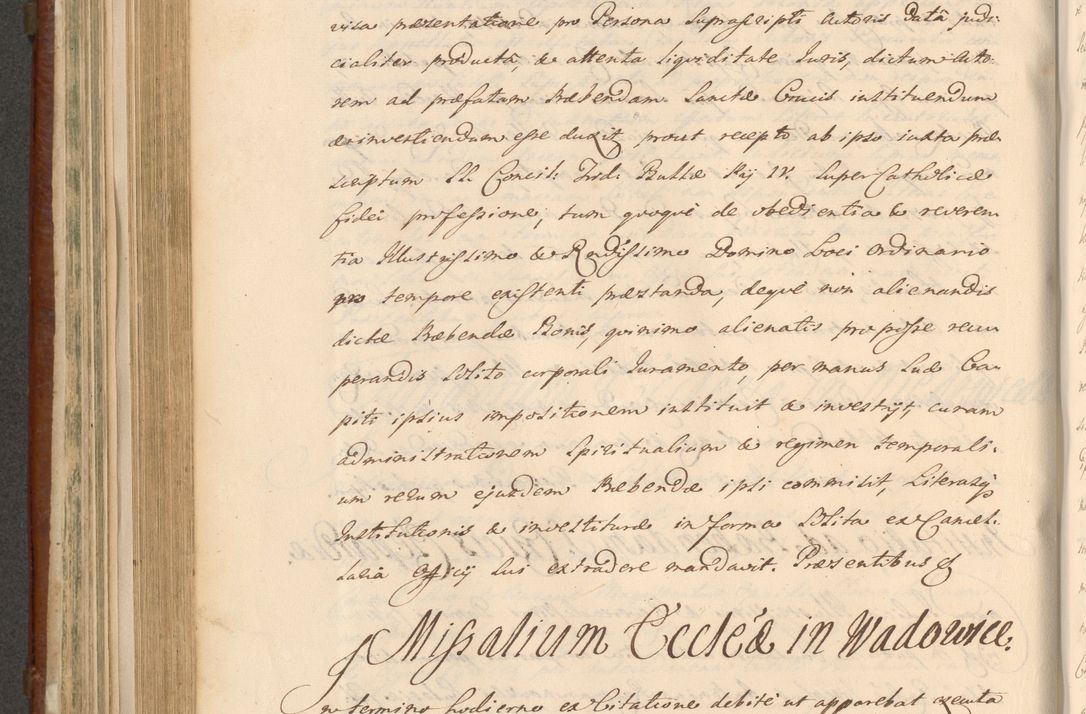 visa præsentatione pro Persona suprascripti Actoris Datâ judi:
cialiter productâ, & attenta liqviditate Iuris, dictum Acto:
rem ad præfatam Præbendam Sanctæ Crucis instituendum
& investiendum esse duxit, prout recepto ab ipso iuxta præ
scriptum SS. Concil: Trid: Bullæ Pij IV. super Catholicæ
fidei professione, tum quoque de obedientia & reveren
tia Illustrissimo & Rndissimo Domino Loci Ordinario
pro tempore existenti præstanda, deque non alienandis
dictæ Præbendæ Bonis, quinimo alienatis pro posse recu
perandis solito corporali Iuramento, per manus suæ Ca
piti ipsius impositionem instituit & investijt, curam
administrationem spiritualium & regimen temporali:
um rerum ejusdem Præbendæ ipsi commisit, Literasq
Institutionis & investituræ in forma solita ex Cancel:
laria Officij sui extradere mandavit. Præsentibus &
Missalium Eccleæ in Wadowice.
In termino hodierno ex Citatione debitè ut apparebat executa